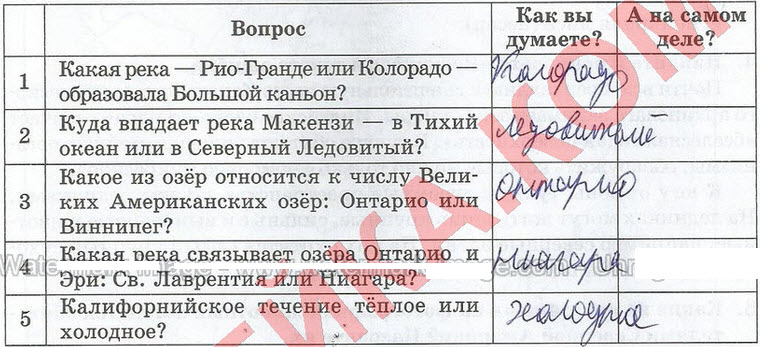 Вопрос
Как вы думаете?
А на самом деле?
1
Какая река — Рио-Гранде или Колорадо —
образовала Большой каньон?
Колорадо
2
Куда впадает река Макензи — в Тихий
океан или в Северный Ледовитый?
Ледовитый
3
Какое из озёр относится к числу Вели-
ких Американских озёр: Онтарио или
Виннипег?
Онтарио
4
Какая река связывает озёра Онтарио и
Эри: Св. Лаврентия или Ниагара?
Ниагара
5
Калифорнийское течение тёплое или
холодное?
холодное